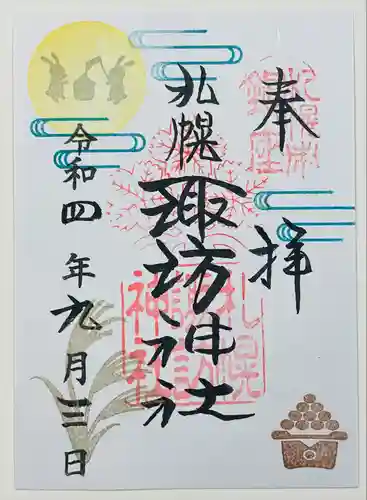 奉拝
札幌諏訪神社
令和四年九月三日
札幌諏訪神社